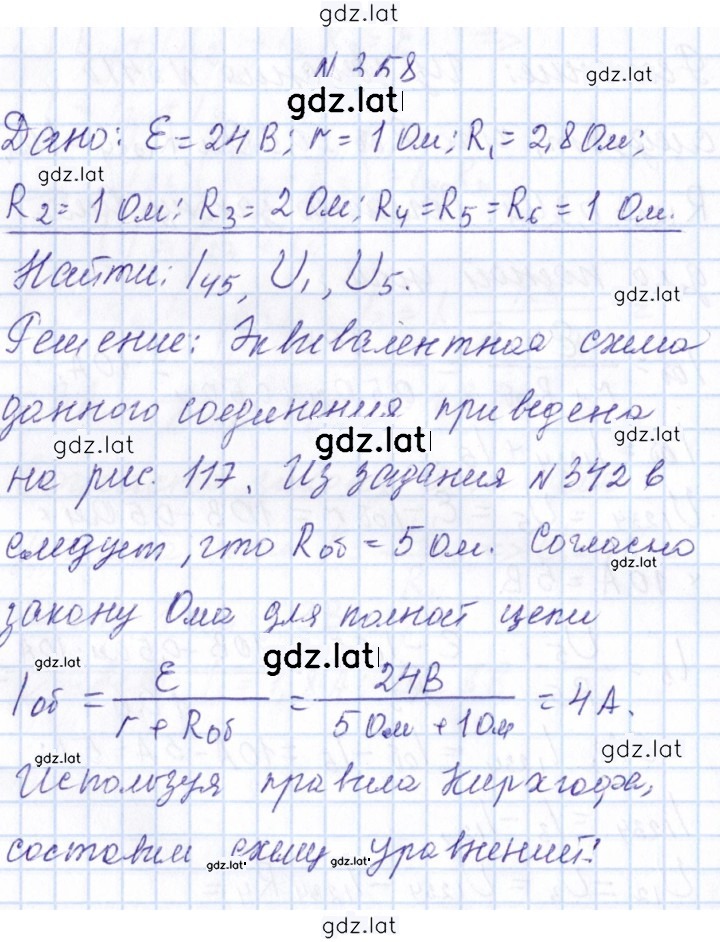 gdz.lat
N 358
gdz.lat
gdz.lat
Дано: Ɛ = 24 В; r = 1 Ом; R₁ = 2,8 Ом;
gdz.lat
R₂ = 1 Ом; R₃ = 2 Ом; R₄ = R₅ = R₆ = 1 Ом.
Найти: I₄₅, U₁, U₅.
gdz.lat
Решение: Эквивалентная схема
данного соединения приведена
gdz.lat gdz.lat gdz.lat
на рис. 117. Из задания N 342 в
следует, что Rоб = 5 Ом. Согласно
gdz.lat
закону Ома для полной цепи
gdz.lat gdz.lat
Iоб = Ɛ / (r + Rоб) = 24 В / (5 Ом + 1 Ом) = 4 А.
gdz.lat gdz.lat
Используя правила Кирхгофа,
составим схему уравнений:
gdz.lat gdz.lat
gdz.lat